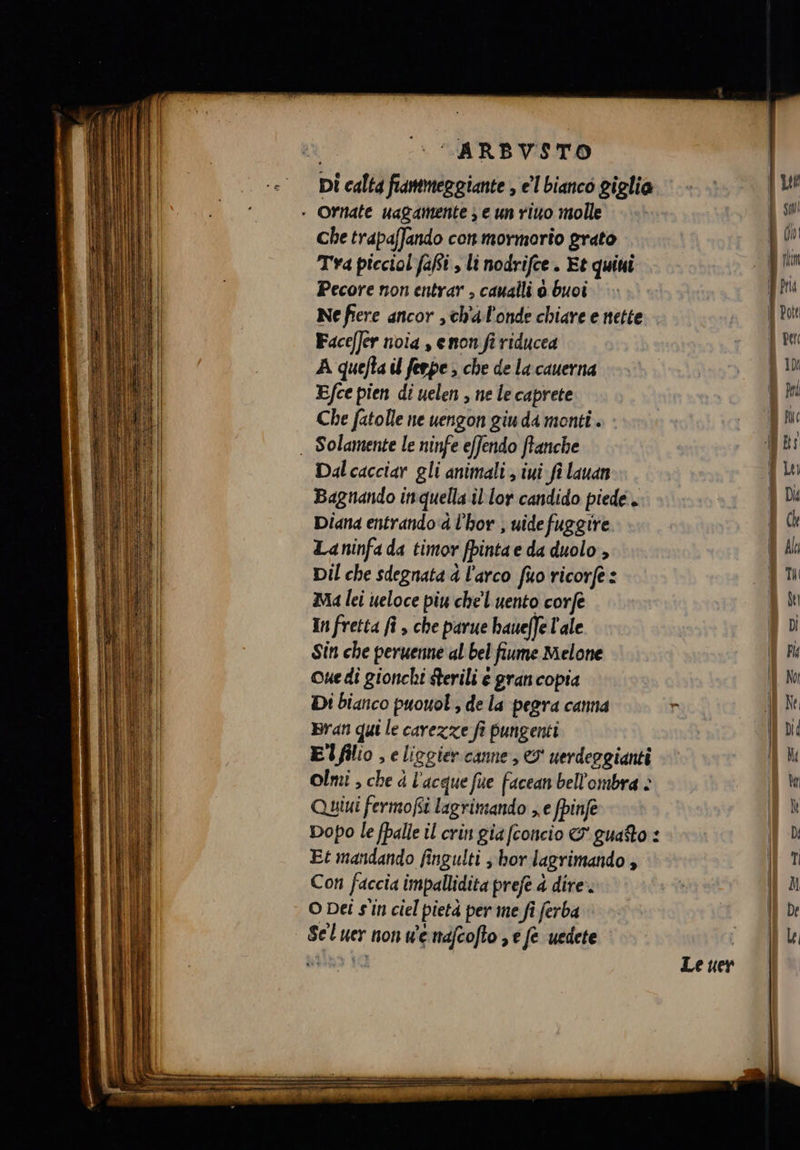 ARBVSTO
Di calta fiammeggiante , e'l bianco giglio
Ornate uagamente ; e un riuo molle
Che trapaſſando con mormorio grato
Tra picciol ſaßi , li nodriſce . Et quiui
Pecore non entrar , caualli o buoi
Ne fiere ancor , ch'à l'onde chiare e nette
Faceſſer noia , e non ſi riducea
A queſta il ſerpe , che de la cauerna
Eſce pien di uelen , ne le caprete
Che ſatolle ne uengon giu da monti .
Solamente le ninfe eſſendo ſtanche
Dal cacciar gli animali , iui ſi lauan
Bagnando in quella il lor candido piede .
Diana entrando à l'hor , uide fuggire
La ninfa da timor ſpinta e da duolo ,
Dil che sdegnata à l'arco ſuo ricorſe :
Ma lei ueloce piu che'l uento corſe
In fretta ſi , che parue haueſſe l'ale
Sin che peruenne al bel fiume Melone
Oue di gionchi ſterili è gran copia
Di bianco puouol , de la pegra canna
Eran qui le carezze ſi pungenti
E'l filio , e liggier canne , & uerdeggianti
Olmi , che à l'acque ſue facean bell'ombra :
Quiui fermoßi lagrimando , e ſpinſe
Dopo le ſpalle il crin gia ſconcio & guaſto :
Et mandando ſingulti , hor lagrimando ,
Con faccia impallidita preſe à dire .
O Dei s'in ciel pietà per me ſi ſerba
Se'l uer non u'è naſcoſto , e ſe uedete
Le uer